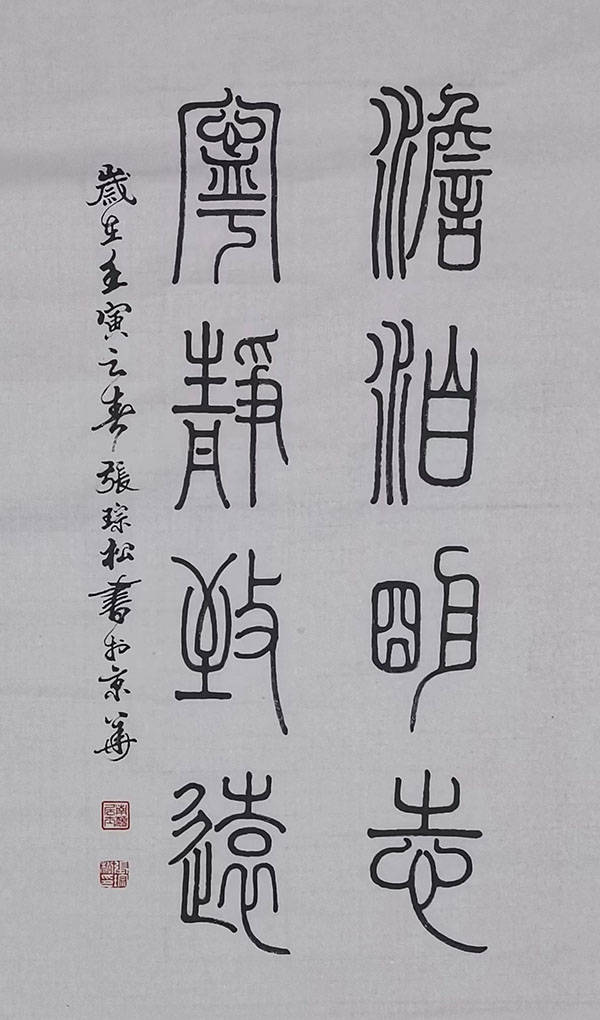 澹泊明志
寧靜致遠
歲在壬寅之春張琮松書於京華